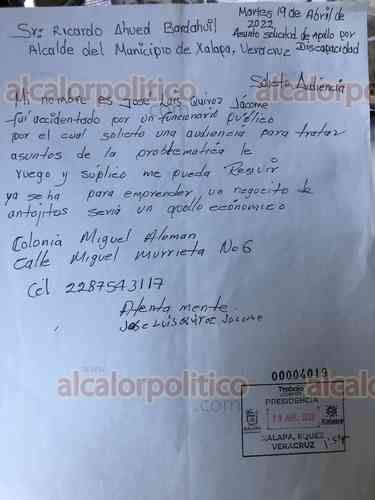 Martes 19 de Abril de
2022
Sr: Ricardo Ahued Bardahuil
Asunto solicitud de Apollo por
Discapacidad
Alcalde del Municipio de Xalapa, Veracruz
Solicito Audiencia
Mi nombre es José Luis Quiroz Jácome
fui accidentado por un funcionario publico
por el cual solicito una audiencia para tratar
asuntos de la problematica le
ruego y suplico me pueda Resivir
ya seha para emprender un negocito de
antojitos seria un apollo económico
Colonia Miguel Aleman
Calle Miguel Murrieta No 6
Cel 2287543117
Atenta mente
JOSE LUIS QUIROZ JACOME
00004019
Trabajo
PRESIDENCIA
19 ABR. 2022
XALAPA, EQUEZ.
VERACRUZ
alcalorpolitico
alcalorpolitico
www.
alcalorpolitico
.com